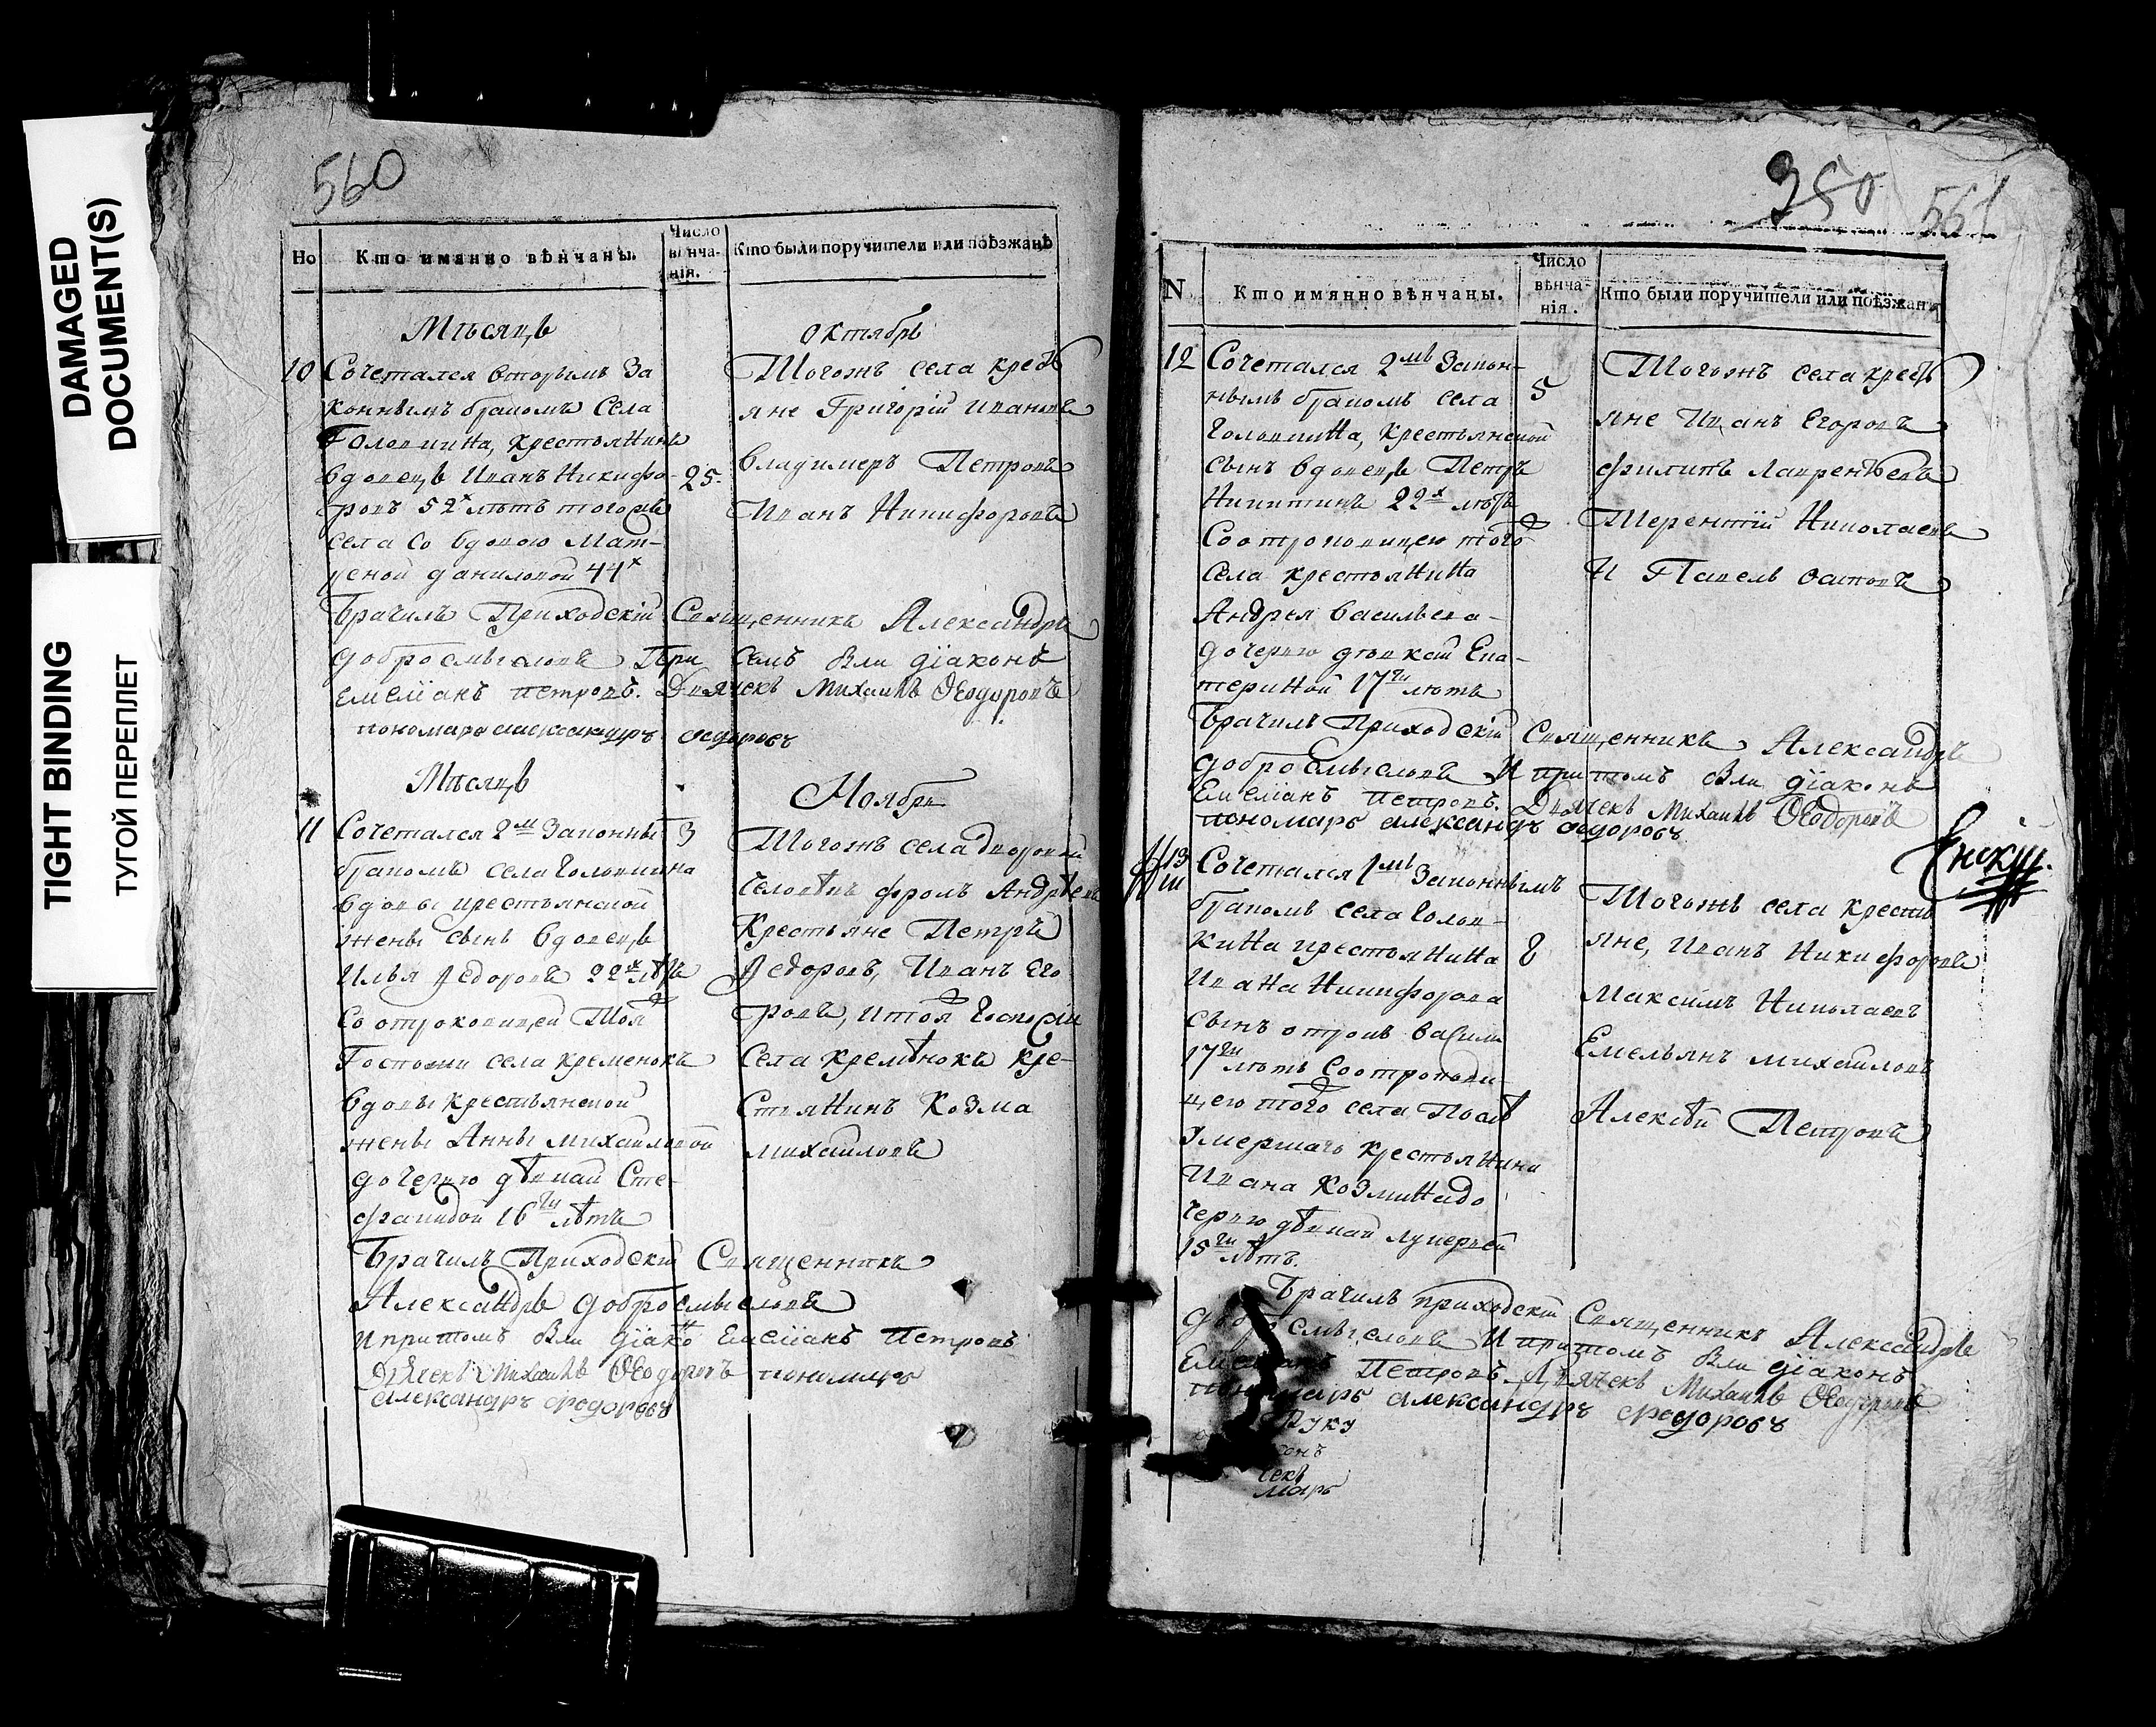 DAMAGED
DOCUMENT(S)
TIGHT BINDING
ТУГОЙ ПЕРЕПЛЕТ
560
Но
Кто имянно вѣнчаны.
Число
вѣнча-
нія.
Кто были поручители или поѣзжанѣ
Мѣсяцъ
октябрь
10
Сочетался вторымъ за
коннымъ бракомъ села
Головкина, крестьянинъ
вдовецъ Иванъ Никифо-
ровъ 52х лѣтъ тогожъ
села со вдовою Мат-
реной даниловой 44х
25.
Тогожъ села кресть
яне Григорій Ивановъ
владимеръ Петровъ
Иванъ Никифоровъ
Брачилъ Приходскій Священникъ Александръ
добросмысловъ При семъ были діаконъ
Емеліанъ петровъ. Дьячекъ Михаилъ Ѳеодоровъ
пономарь александръ федоровъ
Мѣсяцъ
Ноябрь
11
Сочетался 2м законны
бракомъ села головкина
вдовы крестьянской
жены сынъ вдовецъ
Илья Федоровъ 22х лѣтъ
со отроковицей Тояж
Госпожи села кременокъ
вдовы крестьянской
жены Анны михайловой
дочерью дѣвкай Сте-
фанидой 16ти лѣтъ
3
Тогожъ села дворовой
человѣкъ фролъ Андрѣевъ
Крестьяне Петръ
Федоровъ, Иванъ Его
ровъ, и тояж госпожи
Села кремѣнокъ кре-
стянинъ Козма
михаиловъ
Брачилъ Приходскій Священникъ
Александръ добросмысловъ
и притомъ были діаконъ Емеліанъ Петровъ
Дьячекъ Михаилъ Ѳеодоровъ пономарь
александръ федоровъ
350
561
N
Кто имянно вѣнчаны.
Число
вѣнча-
нія.
Кто были поручители или поѣзжан
12
Сочетался 2мъ закон-
нымъ бракомъ села
головкина, крестьянской
сынъ вдовецъ Петръ
Никитинъ 22х лѣтъ
Со отроковицею тогож
села крестьянина
Андрея васильева-
дочерью дѣвкай Ека-
териной 17ти лѣтъ
5
Тогожъ села кресть
яне Иванъ Егоровъ
филипъ лаврентьевъ
Терентій Николаевъ
И Павелъ осиповъ
Брачилъ Приходскій Священникъ Александръ
добросмысловъ И притомъ были діаконъ
Емеліанъ петровъ. Дьячекъ Михаилъ Ѳеодоровъ
пономарь александръ федоровъ
13
Сочетался 1мъ законнымъ
бракомъ села Голов-
кина крестьянина
Ивана Никифорова
сынъ отрокъ василій
17ти лѣтъ Со отрокови-
цею тогож села Послѣ
умершаго крестьянина
Ивана Козмина до
черью дѣвкай лукерьей
15ти лѣтъ.
8
Тогожъ села кресть
яне, Иванъ Никифоровъ
Максимъ Николаевъ
Емельянъ михаиловъ
Алексѣй Петровъ
Брачилъ приходскій Священникъ Александръ
добросмысловъ И притомъ были діаконъ
Емеліанъ Петровъ. Дьячекъ Михаилъ Ѳеодоровъ
пономарь александръ федоровъ
Руку